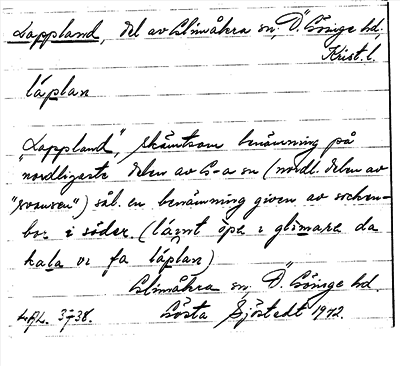 Lappland, del av Glimåkra sn, Ö. Göinge hd.
Krist. l.
láplan
"Lappland", skämtsam benämning på
nordligaste delen av G-a sn (nordl. delen av
"svansen") sål. en benämning given av socken-
bor i söder. (láŋt öpa i glimara da
kala vi fa láplan)
Glimåkra sn, Ö. Göinge hd.
Gösta Sjöstedt 1972.